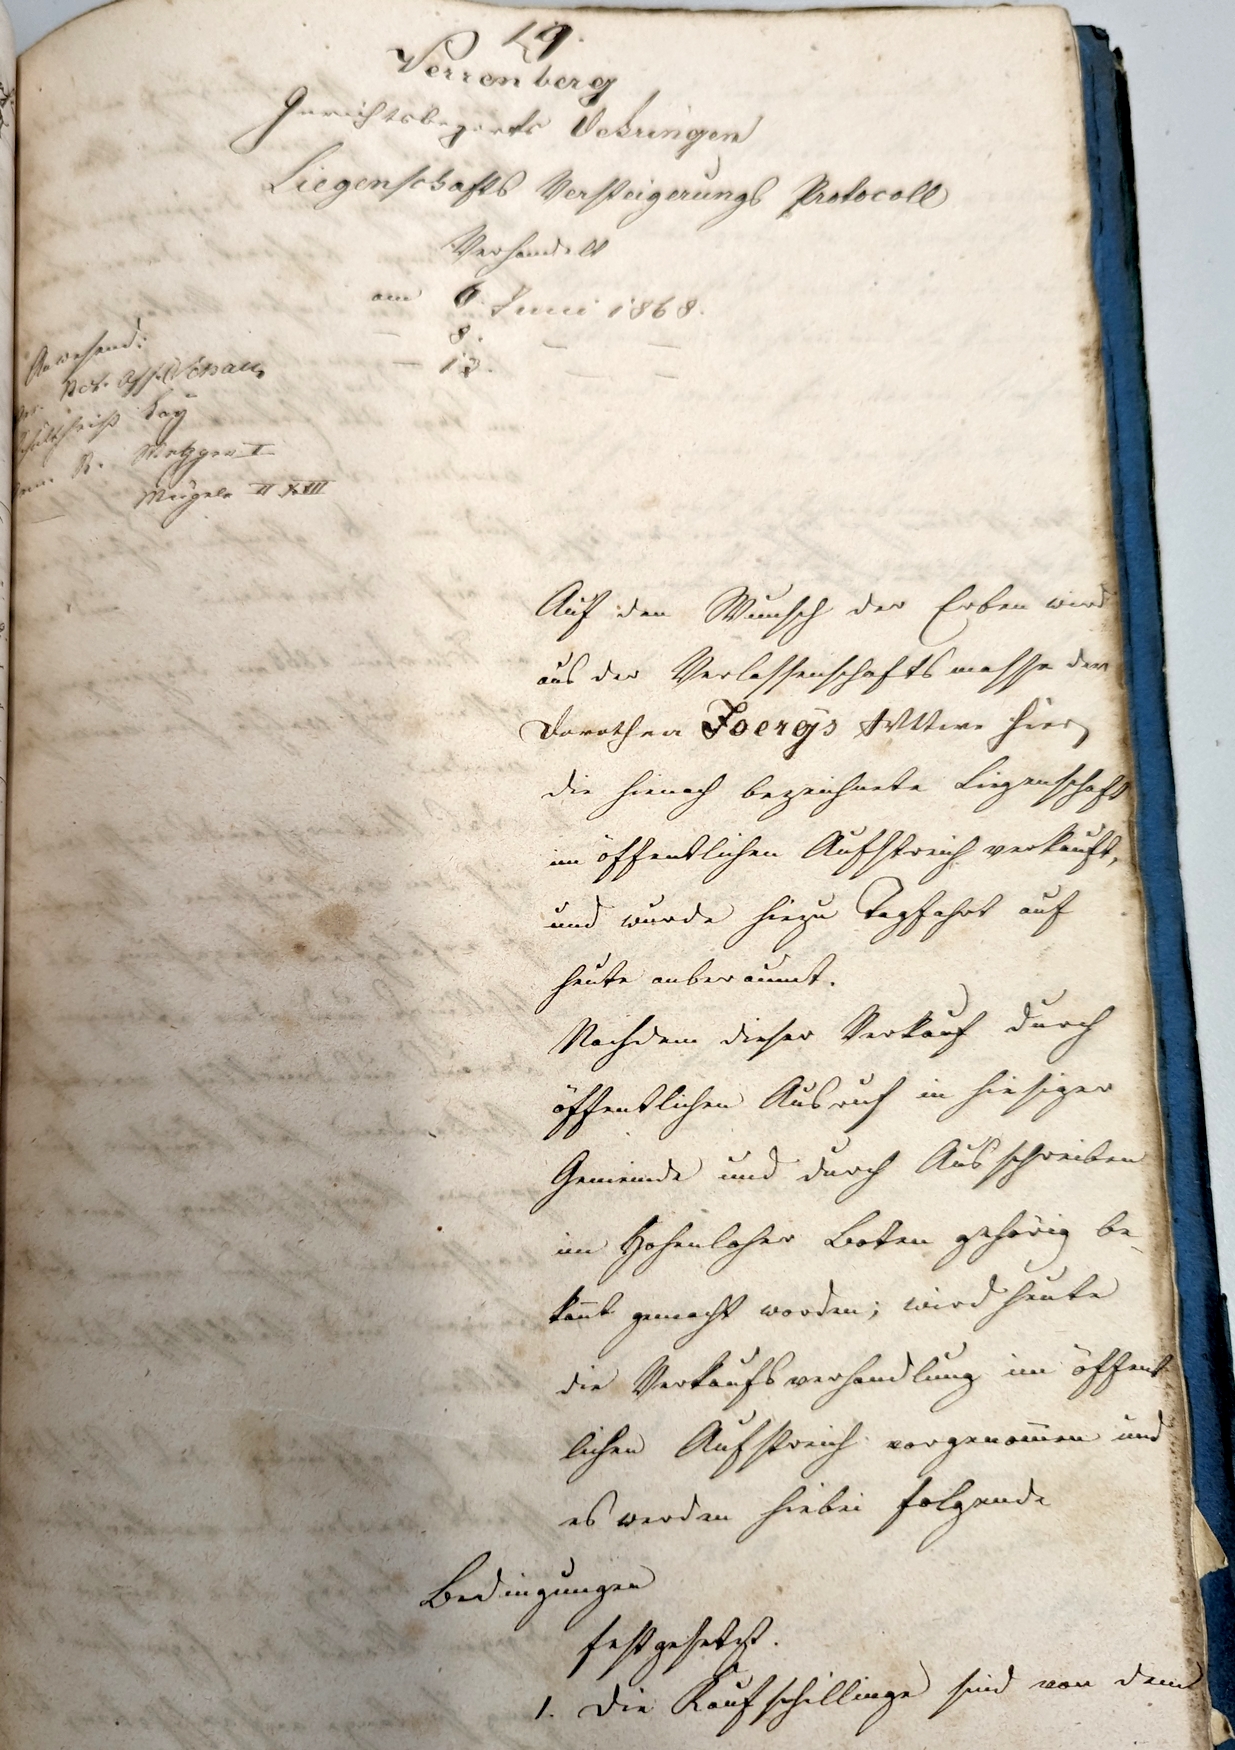 19.
Verrenberg
Gerichtsbezirks Oehringen
Liegenschafts Versteigerungs Protocoll
Verhandelt
am 6. Juni 1868.
— 8. — —
— 13. — —
Anwesend:
Schultheiß Kay
Metzger I
Weigele II & III
Auf den Wunsch der Erben wird
aus der Verlassenschaftsmasse der
Dorothea Joergs Wittwe hier,
die hienach bezeichnete Liegenschaft
im öffentlichen Aufstreich verkauft,
und wurde hiezu Tagfahrt auf
heute anberaumt.
Nachdem dieser Verkauf durch
öffentlichen Ausruf in hiesiger
Gemeinde und durch Ausschreiben
im Hohenloher Boten gehörig be-
kan̄t gemacht worden; wird heute
die Verkaufsverhandlung im öffent
lichen Aufstreich vorgenom̄en und
es werden hiebei folgende
Bedingungen
festgesetzt.
1. Die Kaufschillinge sind von dem